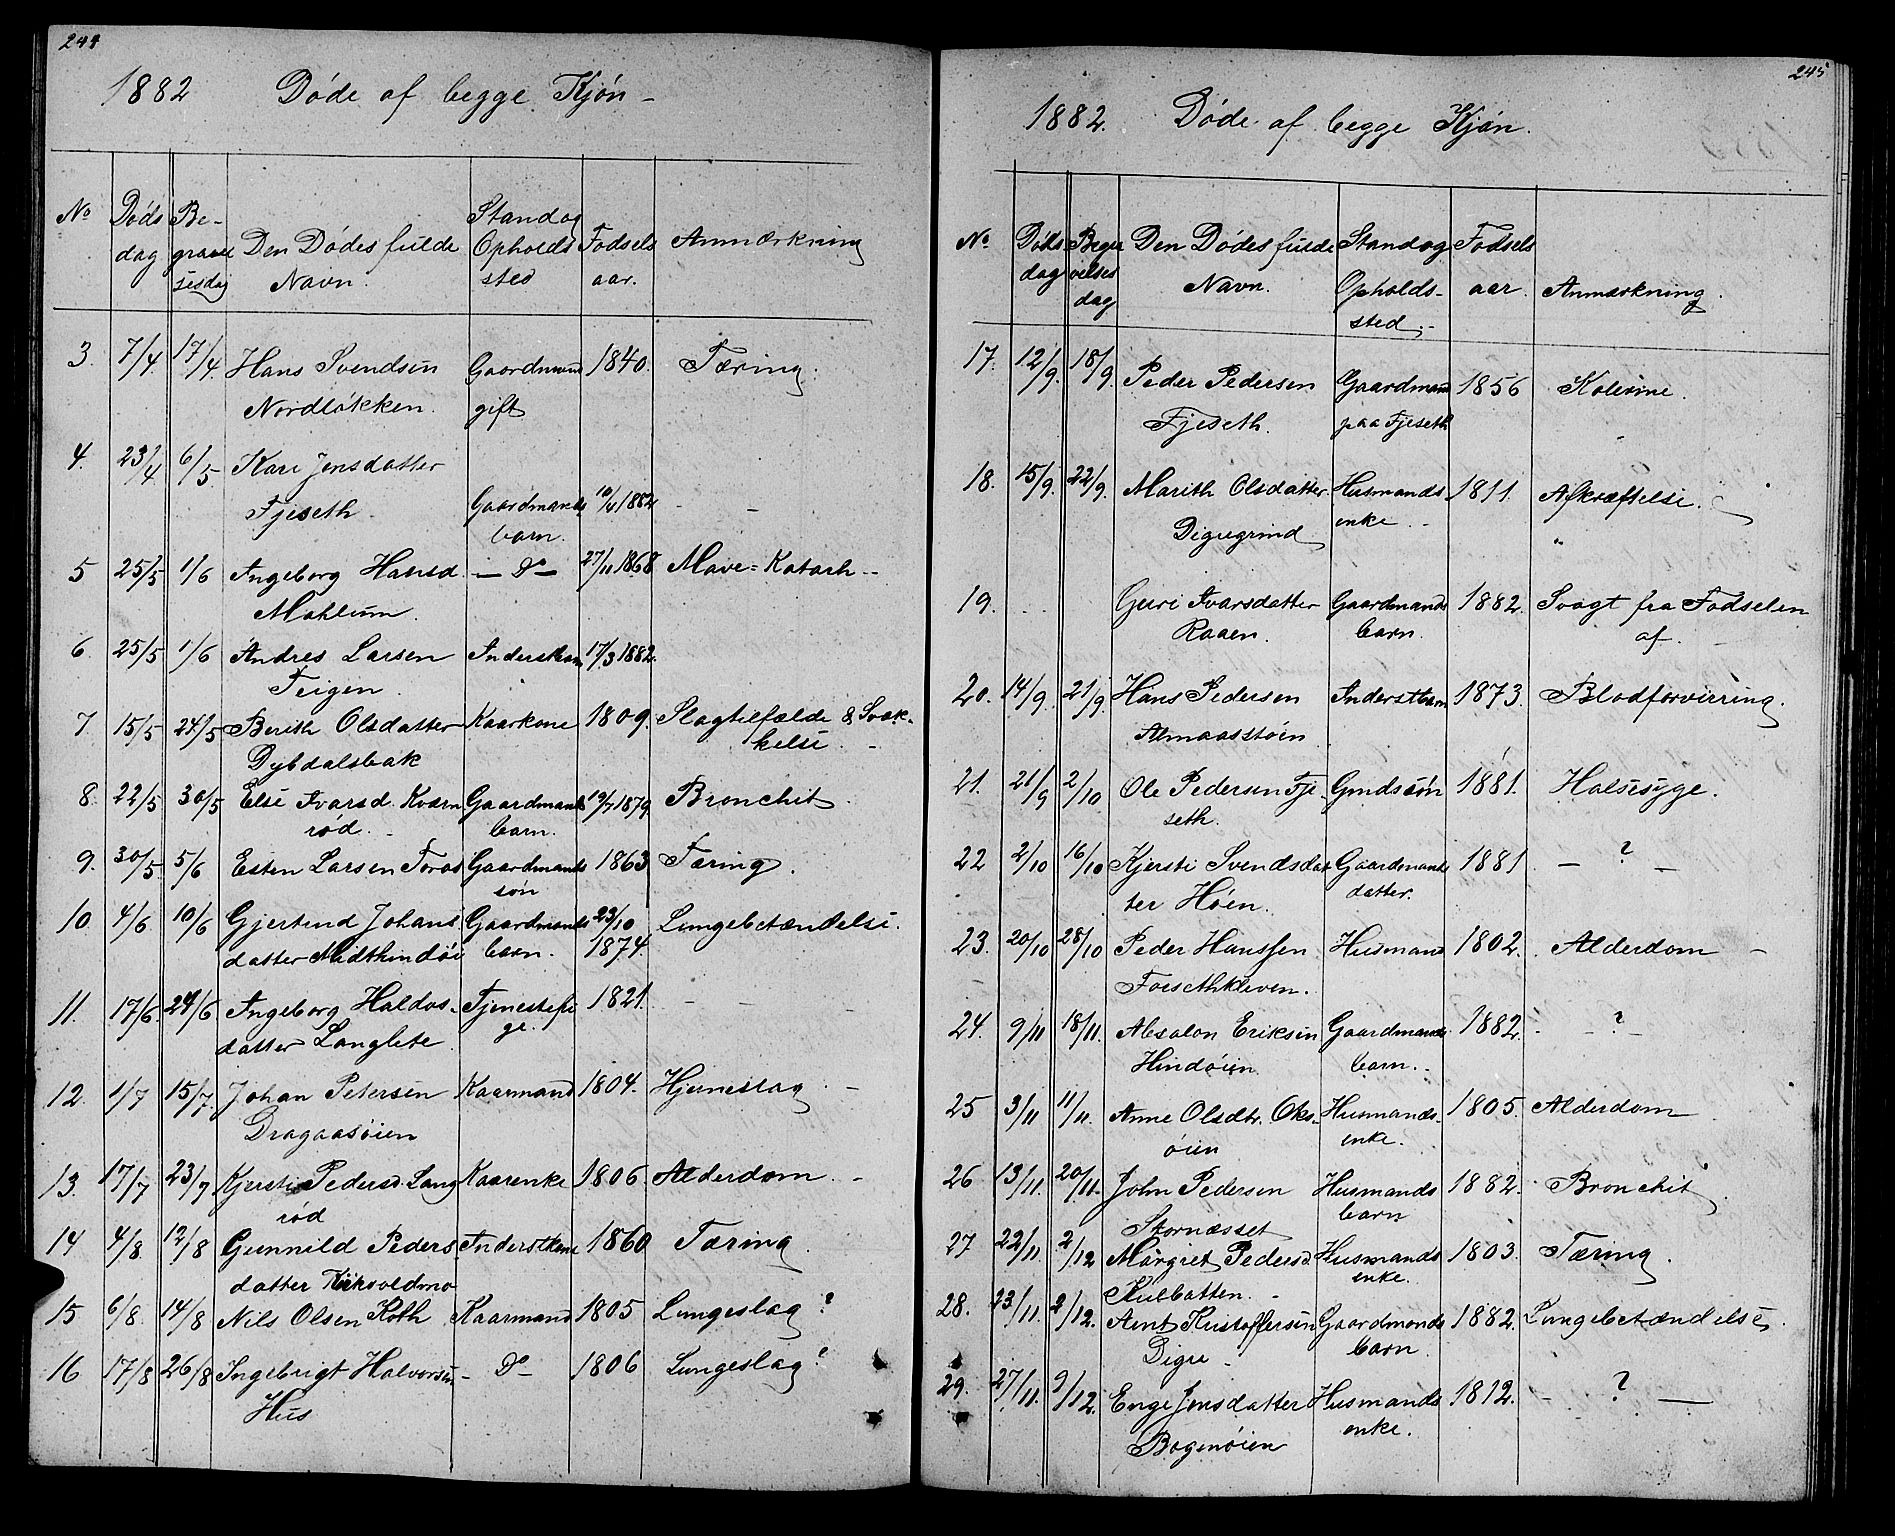 244
1882 Døde af begge Kjøn -
No Døds Be- Den Dødes fulde Stand og Fødsels Anmærkning
dag gravel Navn. Opholds aar.
sesdag sted
3. 7/4. 17/4. Hans Svendsen Gaardmand 1840. Tæring.
Nordløkken. gift
4. 23/4 6/5 Kari Jensdatter
Fjeseth. Gaardmands 10/4 1882 - -
barn.
5 25/5 1/6 Ingeborg Hansd. - Do - 27/11 1868 Mave-Katarh -
Mohlum.
6 25/5 1/6 Andres Larsen Inderstbarn 17/3 1882.
Teigen.
7. 15/5 24/5 Berith Olsdatter Kaarkone 1809. Slagtilfælde & Svæk-
Dybdalsbak kelse. -
8. 22/5 30/5 Else Ivarsd. Kværn Gaardmands 19/7 1879. Bronchit.
rød. - barn.
9. 30/5 5/6 Esten Larsen Toraas Gaardmands 1863 Tæring.
søn
10. 4/6 10/6 Gjertrud Johans Gaardmands 23/10 Lungebetændelse.
datter Midthindøi barn. 1874.
11. 17/6. 24/6 Ingeborg Haldos- Tjenestepi 1821. - -
datter Langlete ge.
12. 1/7 15/7 Johan Petersen Kaarmand 1804. Hjerneslag. -
Dragaasøien
13. 17/7 23/7 Kjersti Pedersd. Lang Kaarenke 1806. Alderdom. -
rød
14 4/8 12/8 Gunnild Peders Inderstkone 1860 Tæring.
datter Kirkvoldmo
15 6/8. 14/8 Nils Olsen Koth Kaarmand 1805 Lungeslag?
16 17/8 26/8 Ingebrigt Halvorsen - Do - 1806 Lungeslag?
Hus
245
1882. Døde af begge Kjøn.
No. Døds Begra Den Dødes fulde Stand og Fødsels
dag velses Navn. Opholds- aar. Anmærkning.
dag sted. -
17. 12/9. 18/9. Peder Pedersen Gaardmand 1856 Kolerine.
Fjeseth. paa Fjeseth
18. 15/9. 22/9. Marith Olsdatter Husmands- 1811. Afkræftelse.
Digregrind enke. - "
19. Guri Ivarsdatter Gaardmands 1882. Svagt fra Fødselen
Raaen. barn. af.
20. 14/9. 21/9. Hans Pedersen Inderstbarn 1873. Blodforvirring.
Almaasstøen
21. 21/9 2/10 Ole Pedersen Fje Gmdssøn 1881. Halssyge.
seth.
22 2/10 16/10 Kjersti Svendsdat Gaardmands 1881 - ? -
ter Høen. datter.
23. 20/10 28/10 Peder Hanssen Husmand 1802. Alderdom -
Forsethkleven.
24. 9/11 18/11. Absalon Eriksen Gaardmands 1882. - ? -
Hindøien barn. -
25 3/11 11/11. Anne Olsdtr. Oks- Husmands- 1805. Alderdom
øien enke.
26 13/11. 20/11. John Pedersen Husmands 1882. Bronchit.
Stornæsset barn
27 22/11. 2/12 Margret Pedersd. Husmands 1803. Tæring.
Kulbatten. - enke.
28. 23/11. 2/12. Arnt Kristoffersen Gaardmands 1882. Lungebetændelse.
Digre - barn.
29. 27/11. 9/12. Enge Jensdatter Husmands 1812. - ? -
Bogenøien enke.